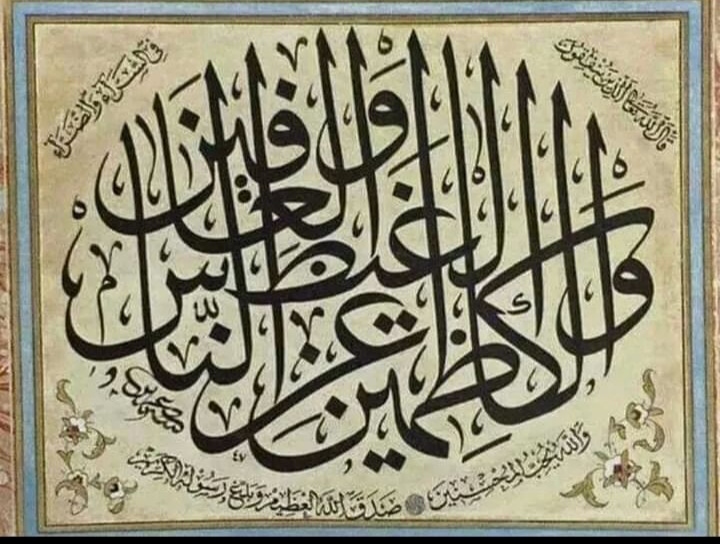 قال الله تعالى الذين ينفقون
في السراء والضراء
والكاظمين الغيظ والعافين
عن الناس
والله يحب المحسنين
صدق الله العظيم وبلغ رسوله الكريم